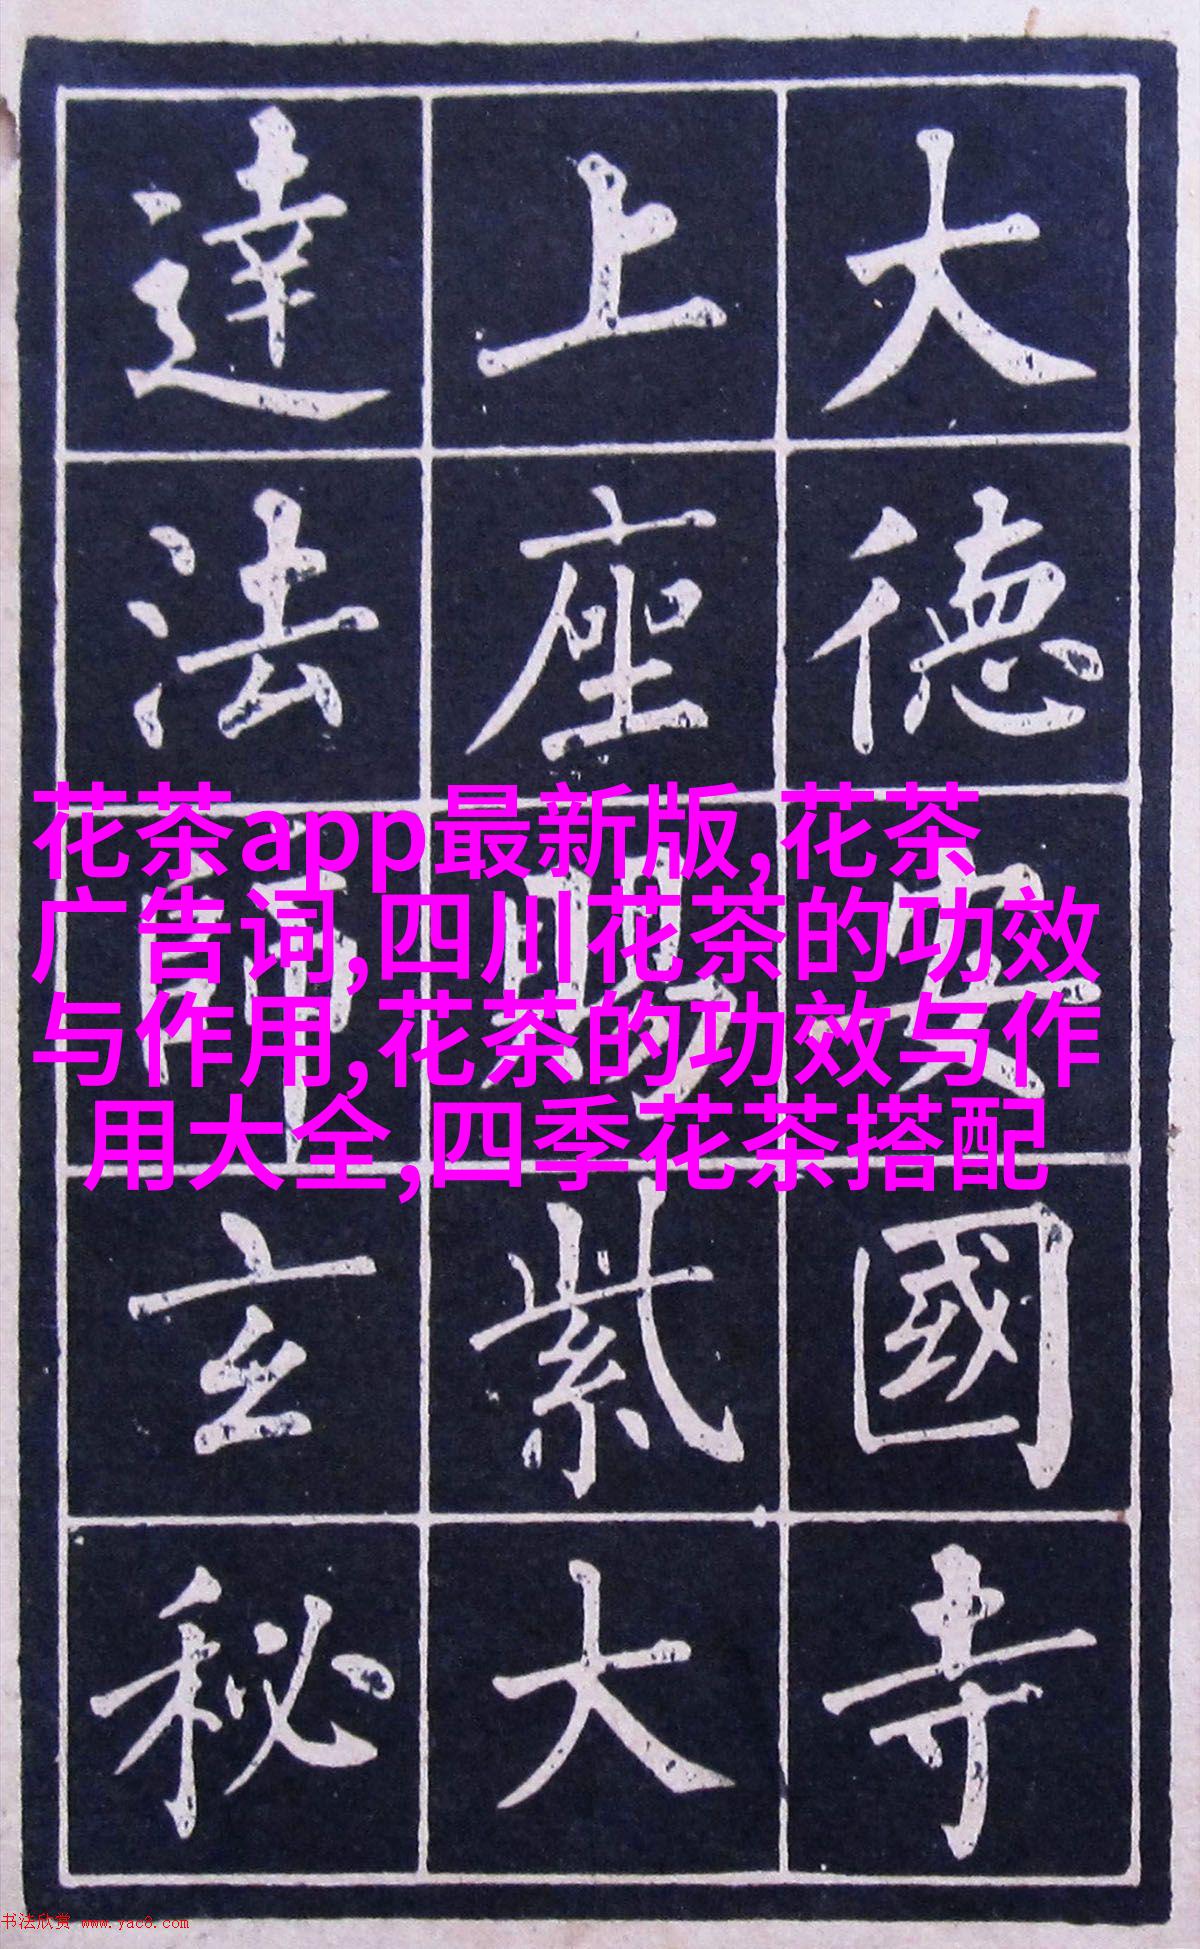 大德安國寺
上座賜紫大
達法師玄秘
花茶app最新版,花茶
广告词,四川花茶的功效
与作用,花茶的功效与作
用大全,四季花茶搭配
书法欣赏 www.yac8.com